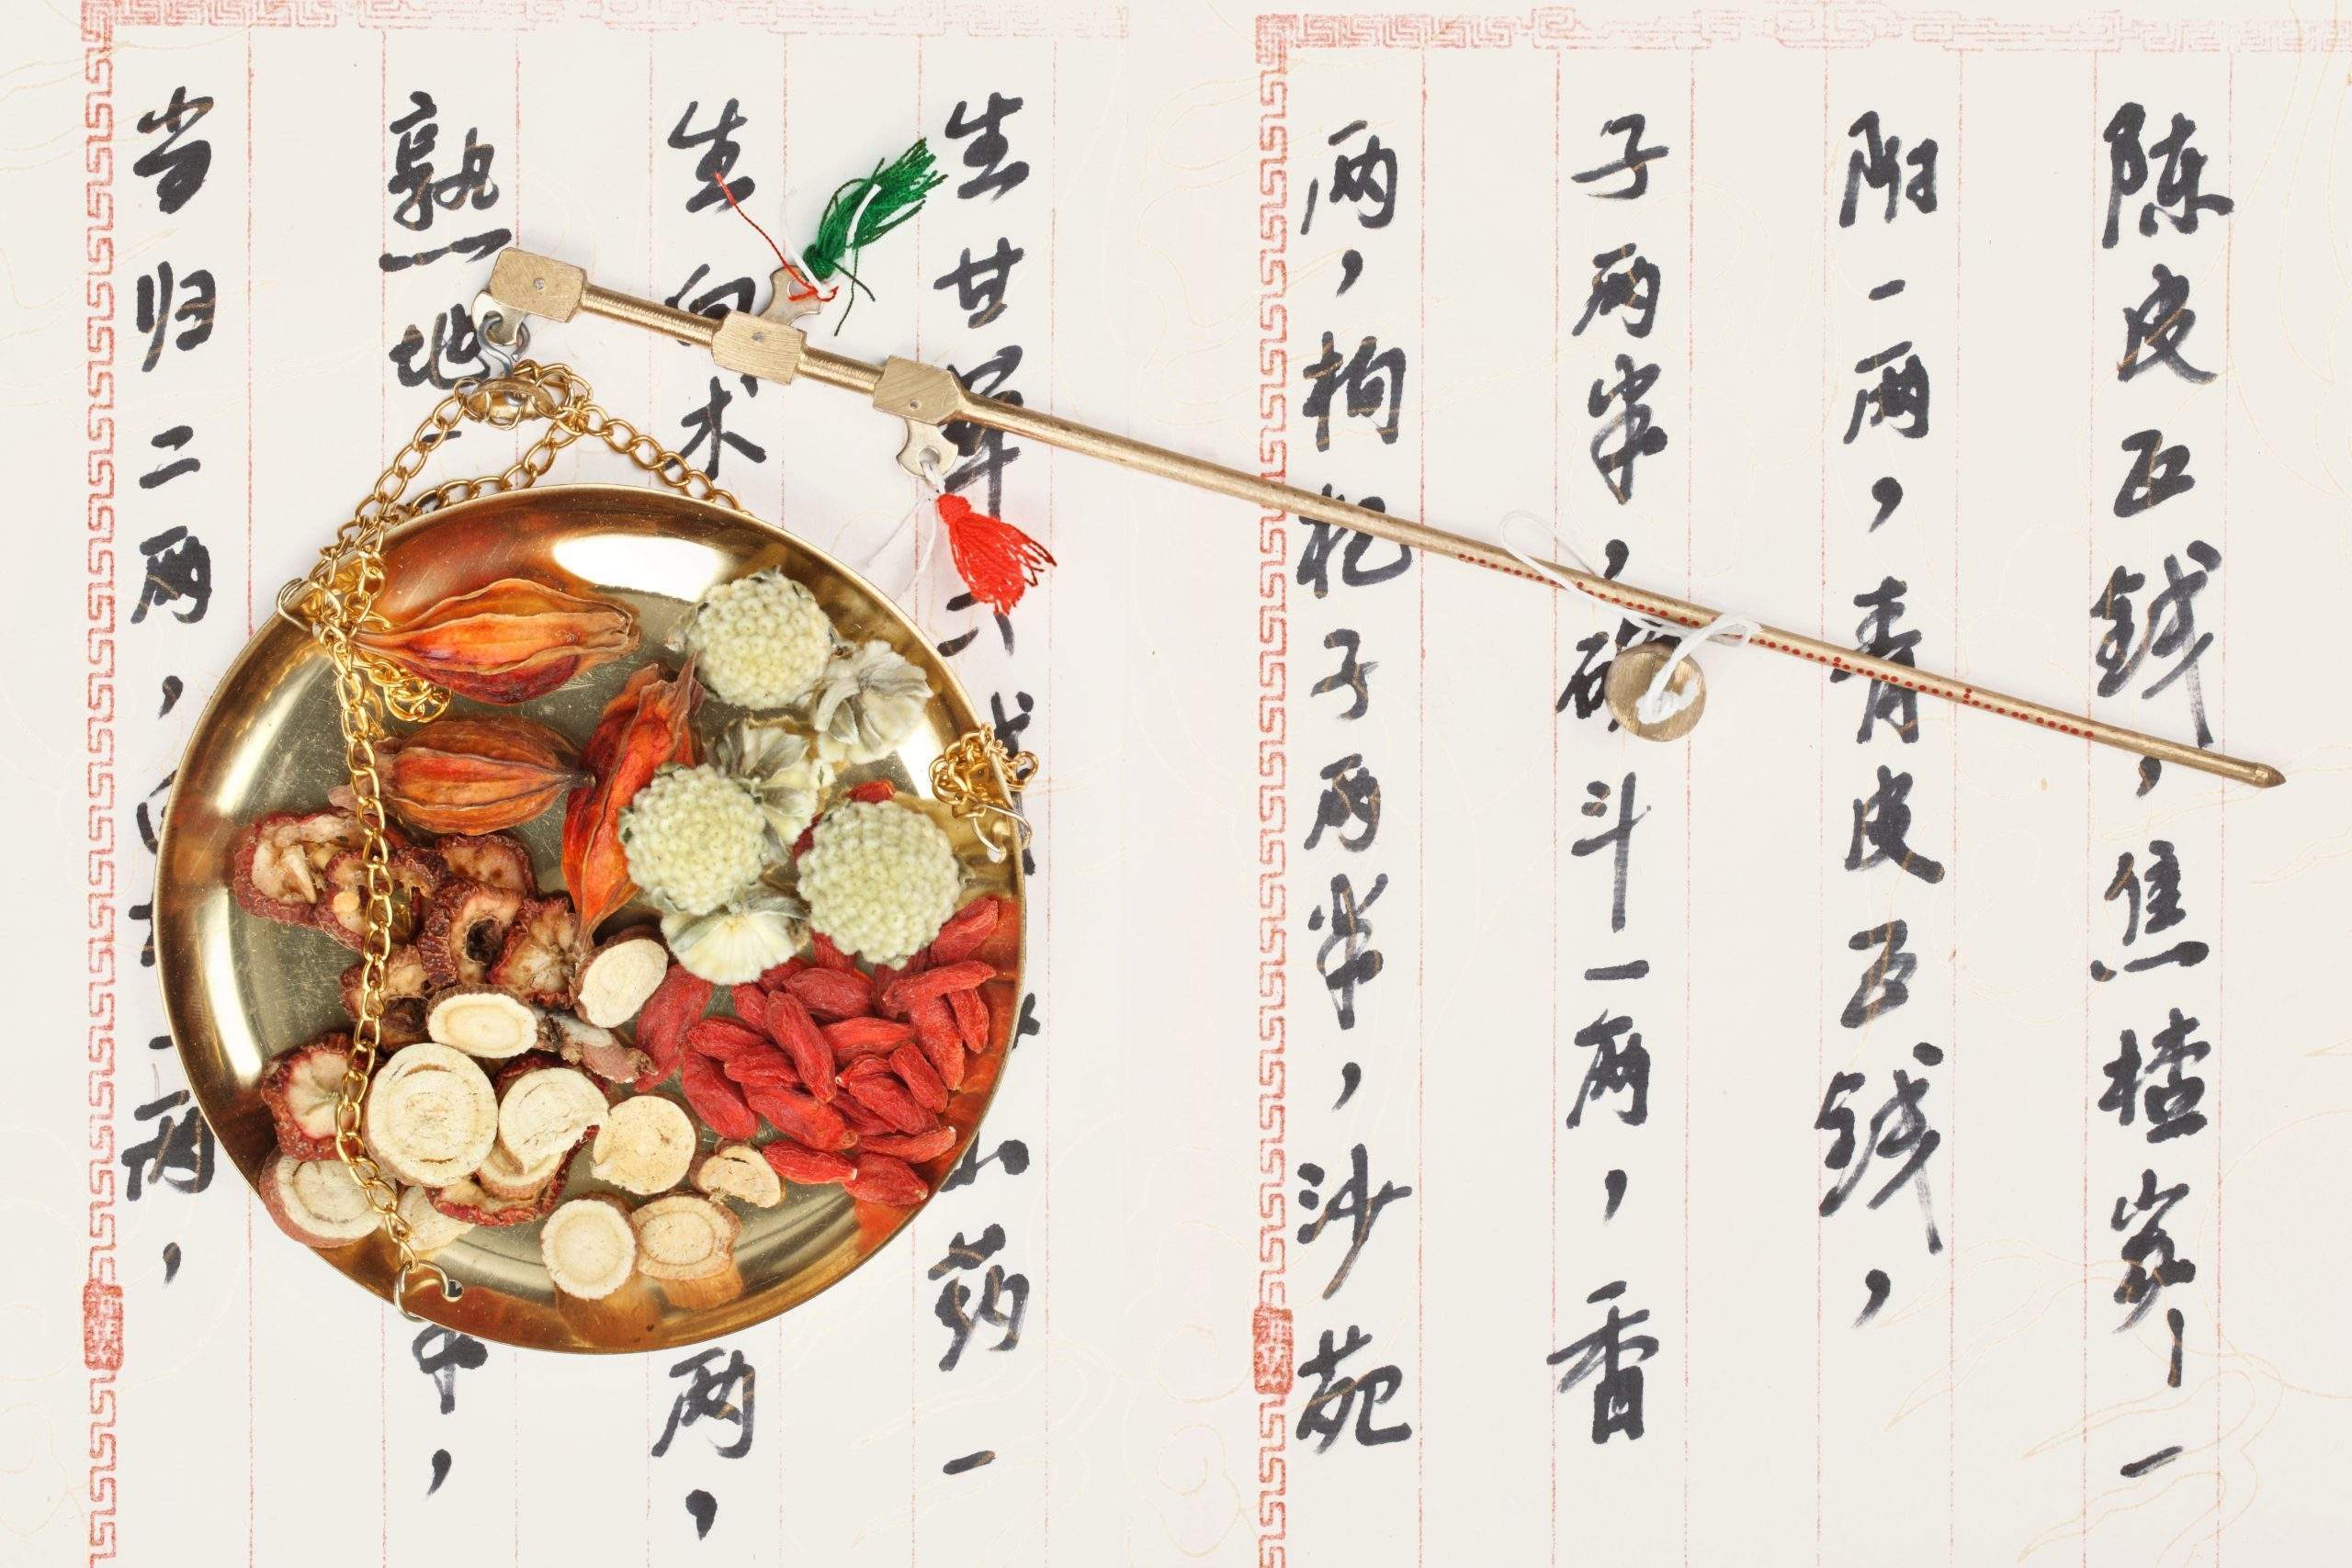 当归二两，一两，
熟地半，
生白术两，
生甘草山药一
两，枸杞子两半，沙苑
子两半，斗一两，香
附一两，青皮五钱，
陈皮五钱，焦楂炭一